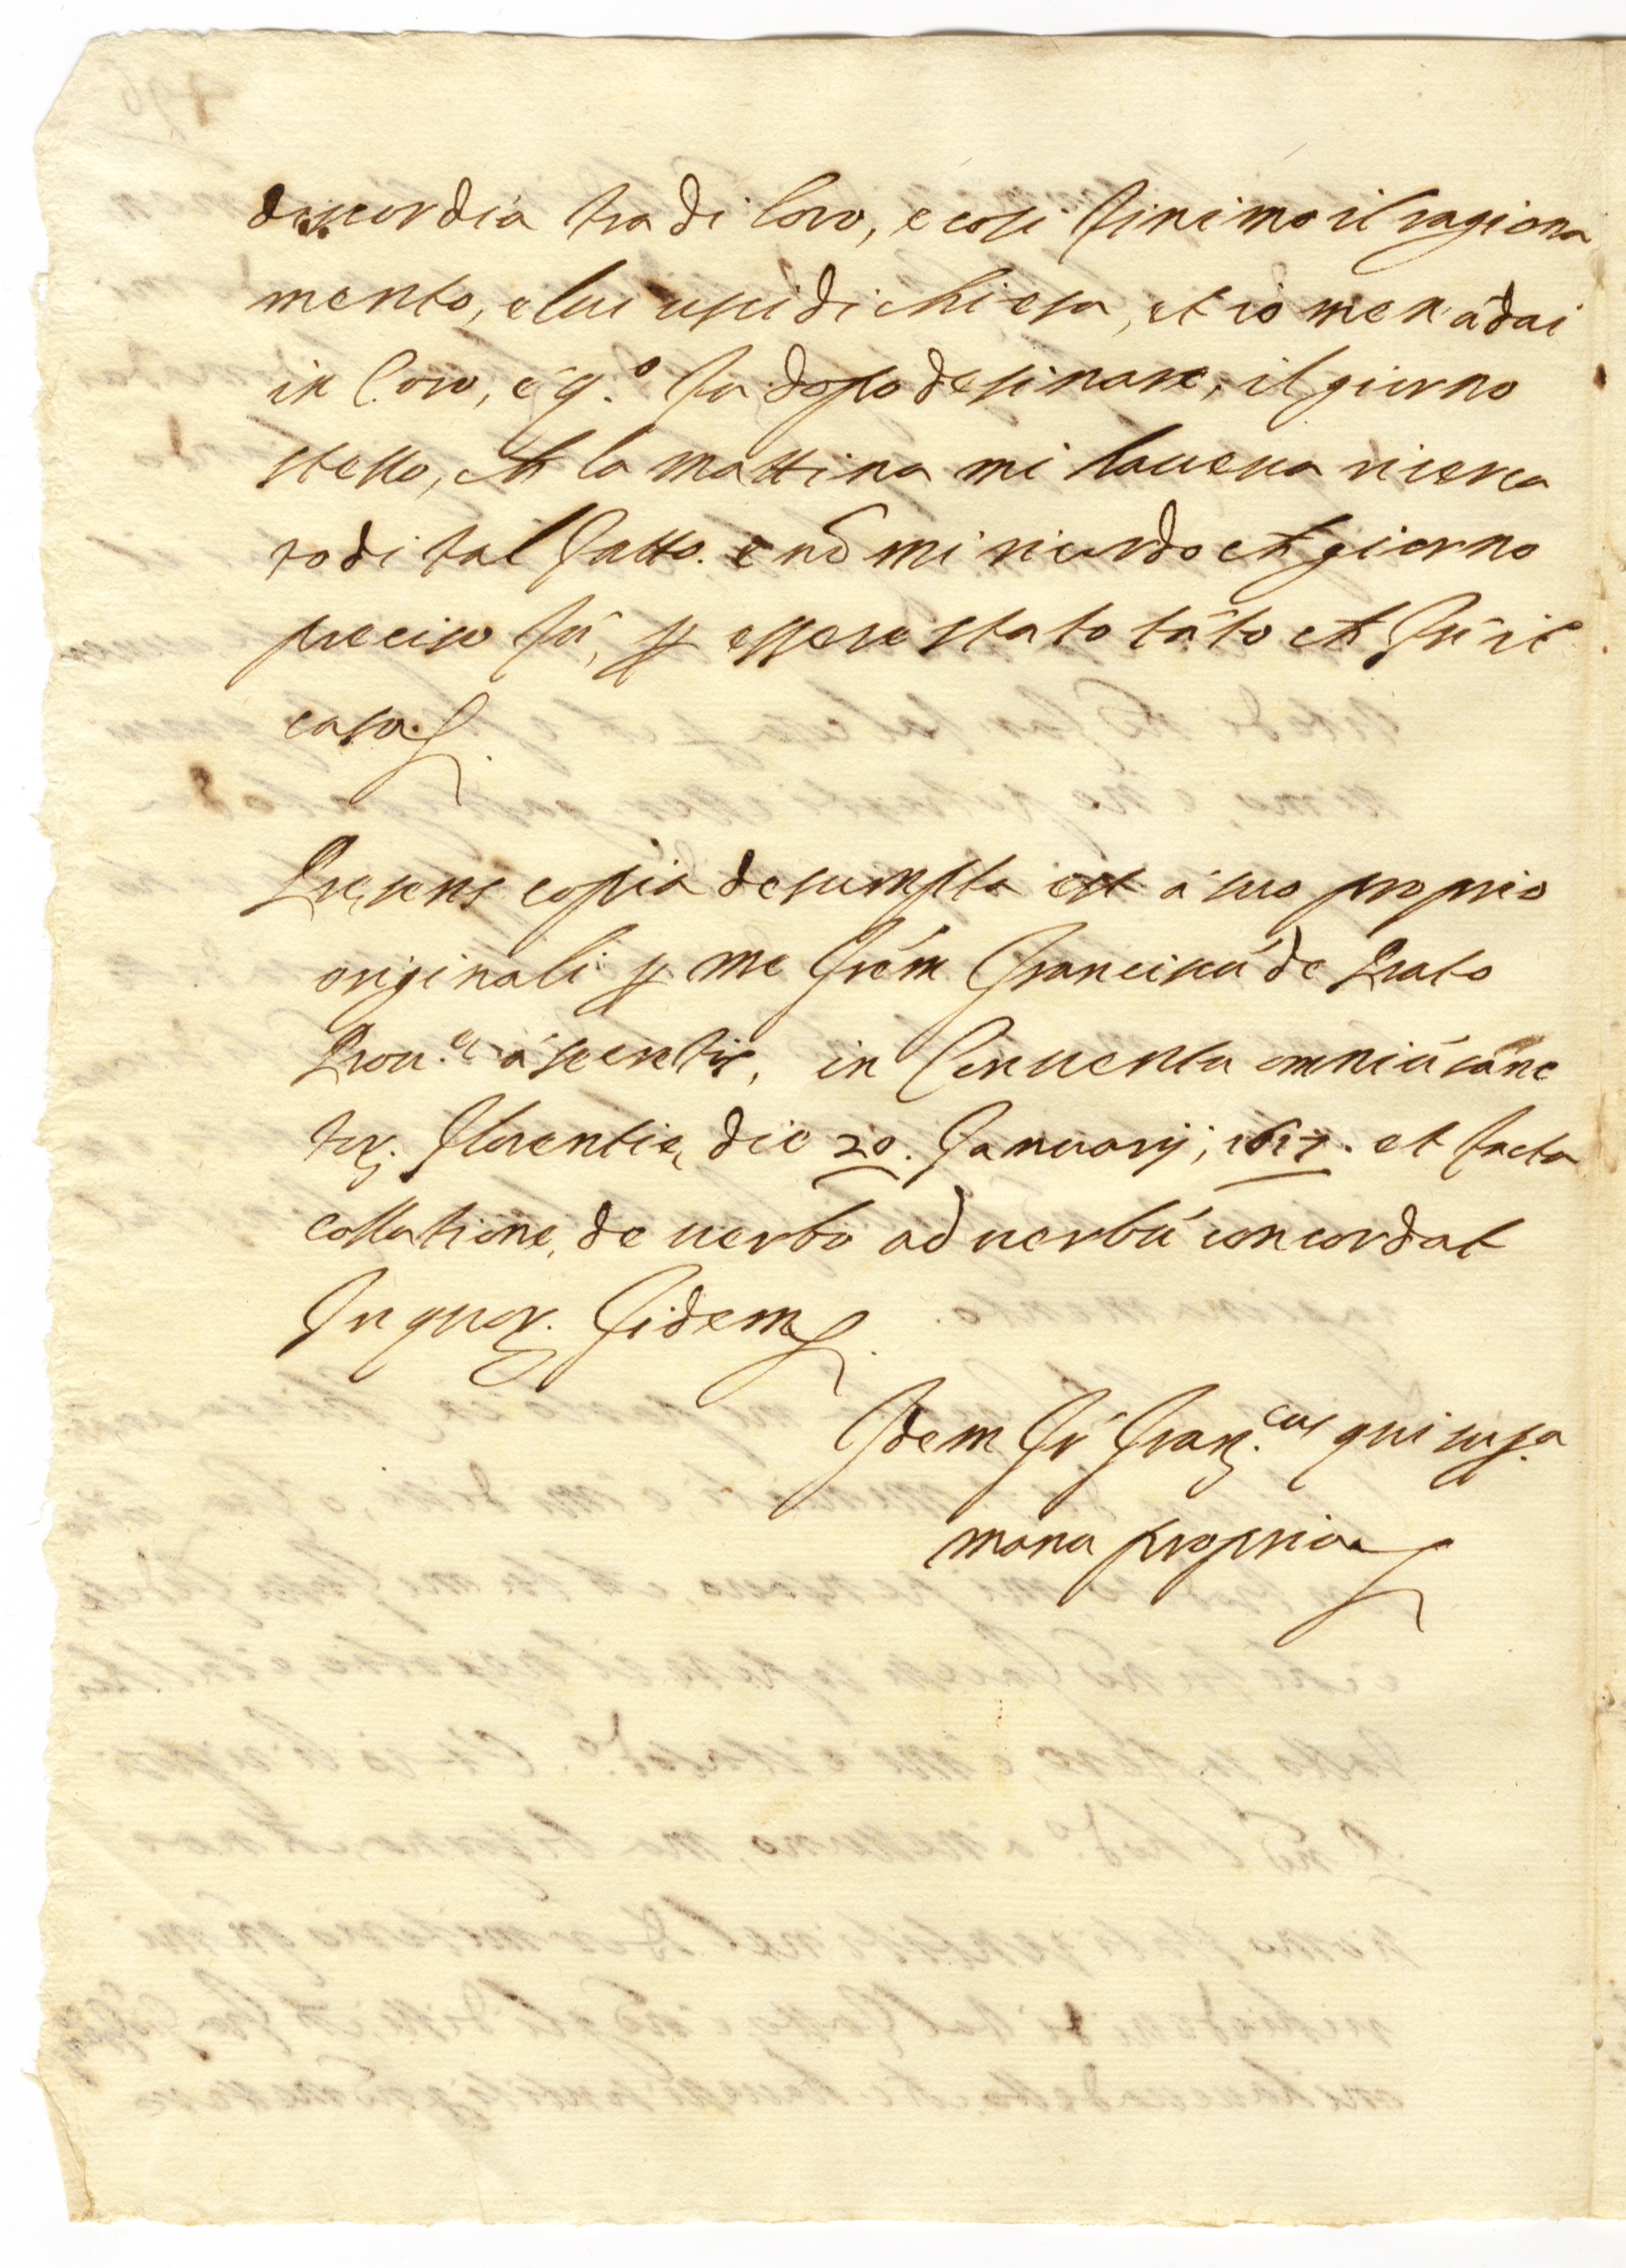 discordia tra di loro, e cosi finimo il ragiona
mento, e lui uscì di chiesa, et io me n'ādai
in Coro, e q.º fu dopo desinare, il giorno
stesso, ch la mattina mi haueua ricerca
to di tal fatto. e nō mi ricordo ch giorno
preciso fù, ꝑ essere stato tāto ch fù il
caso.
Presens copia desumpta est à suo proprio
originali ꝑ me frēm Franciscū de Prato
à secretis, in Conuentu omniū sanc
torꝫ. Florentie, die 20. Januarij, 1617. et facta
collatione, de uerbo ad uerbū concordat
In quorꝫ. fidem
Idem fr̄ Fran.cus qui supa
manu propria